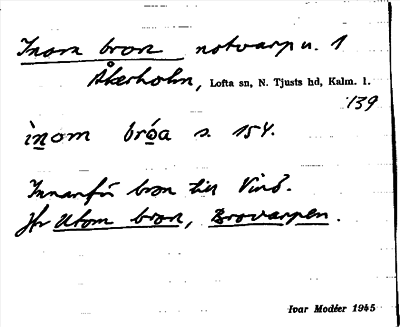 Inom bron notvarp u. 1
Åkerholm, Lofta sn, N. Tjusts hd, Kalm. l.
139
ìnom bróa s. 154.
Innanför bron till Vinö.
Jfr Utom bron, Brovarpen.
Ivar Modéer 1945